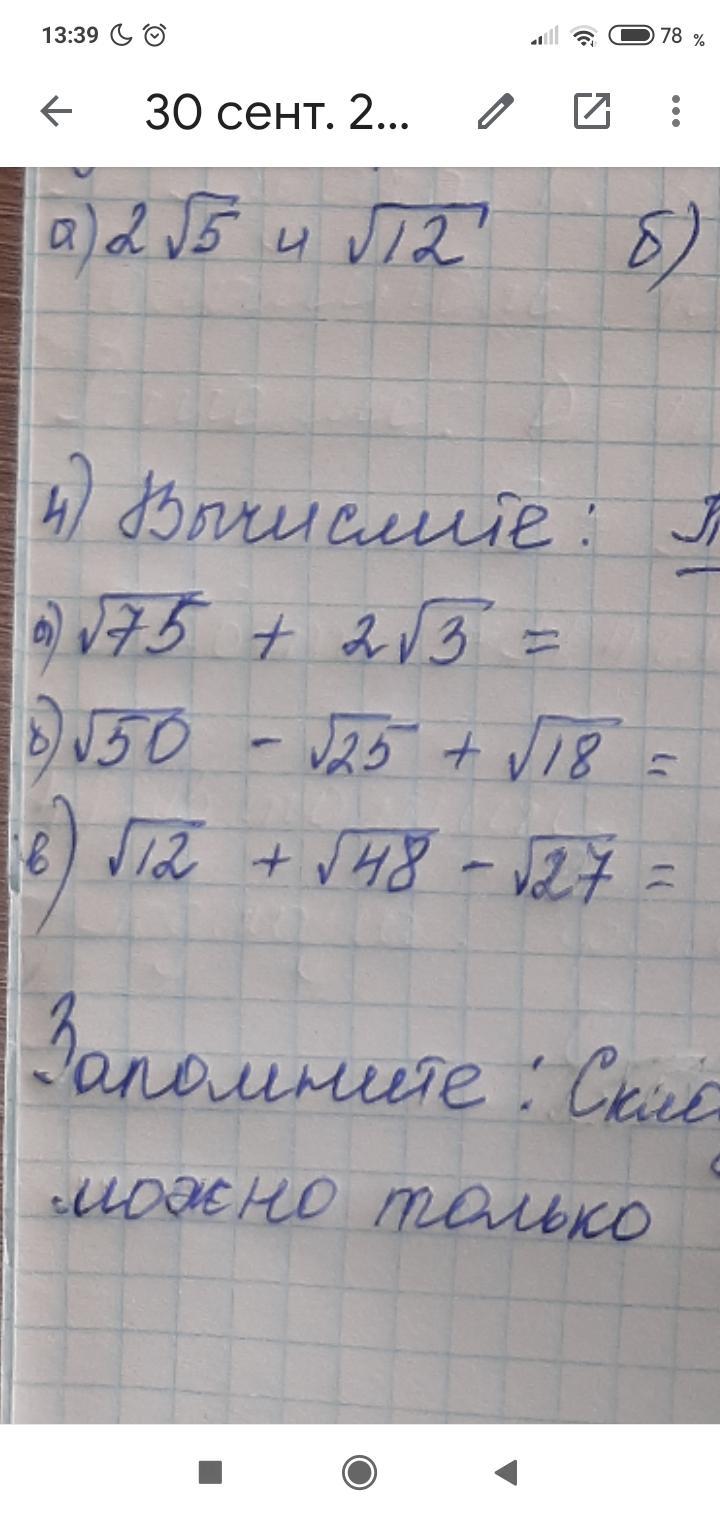 13:39 78 %
30 сент. 2...
а) 2√5 и √12 б)
4) Вычислите:
а) √75 + 2√3 =
б) √50 - √25 + √18 =
в) √12 + √48 - √27 =
Запомните: Скла
можно только